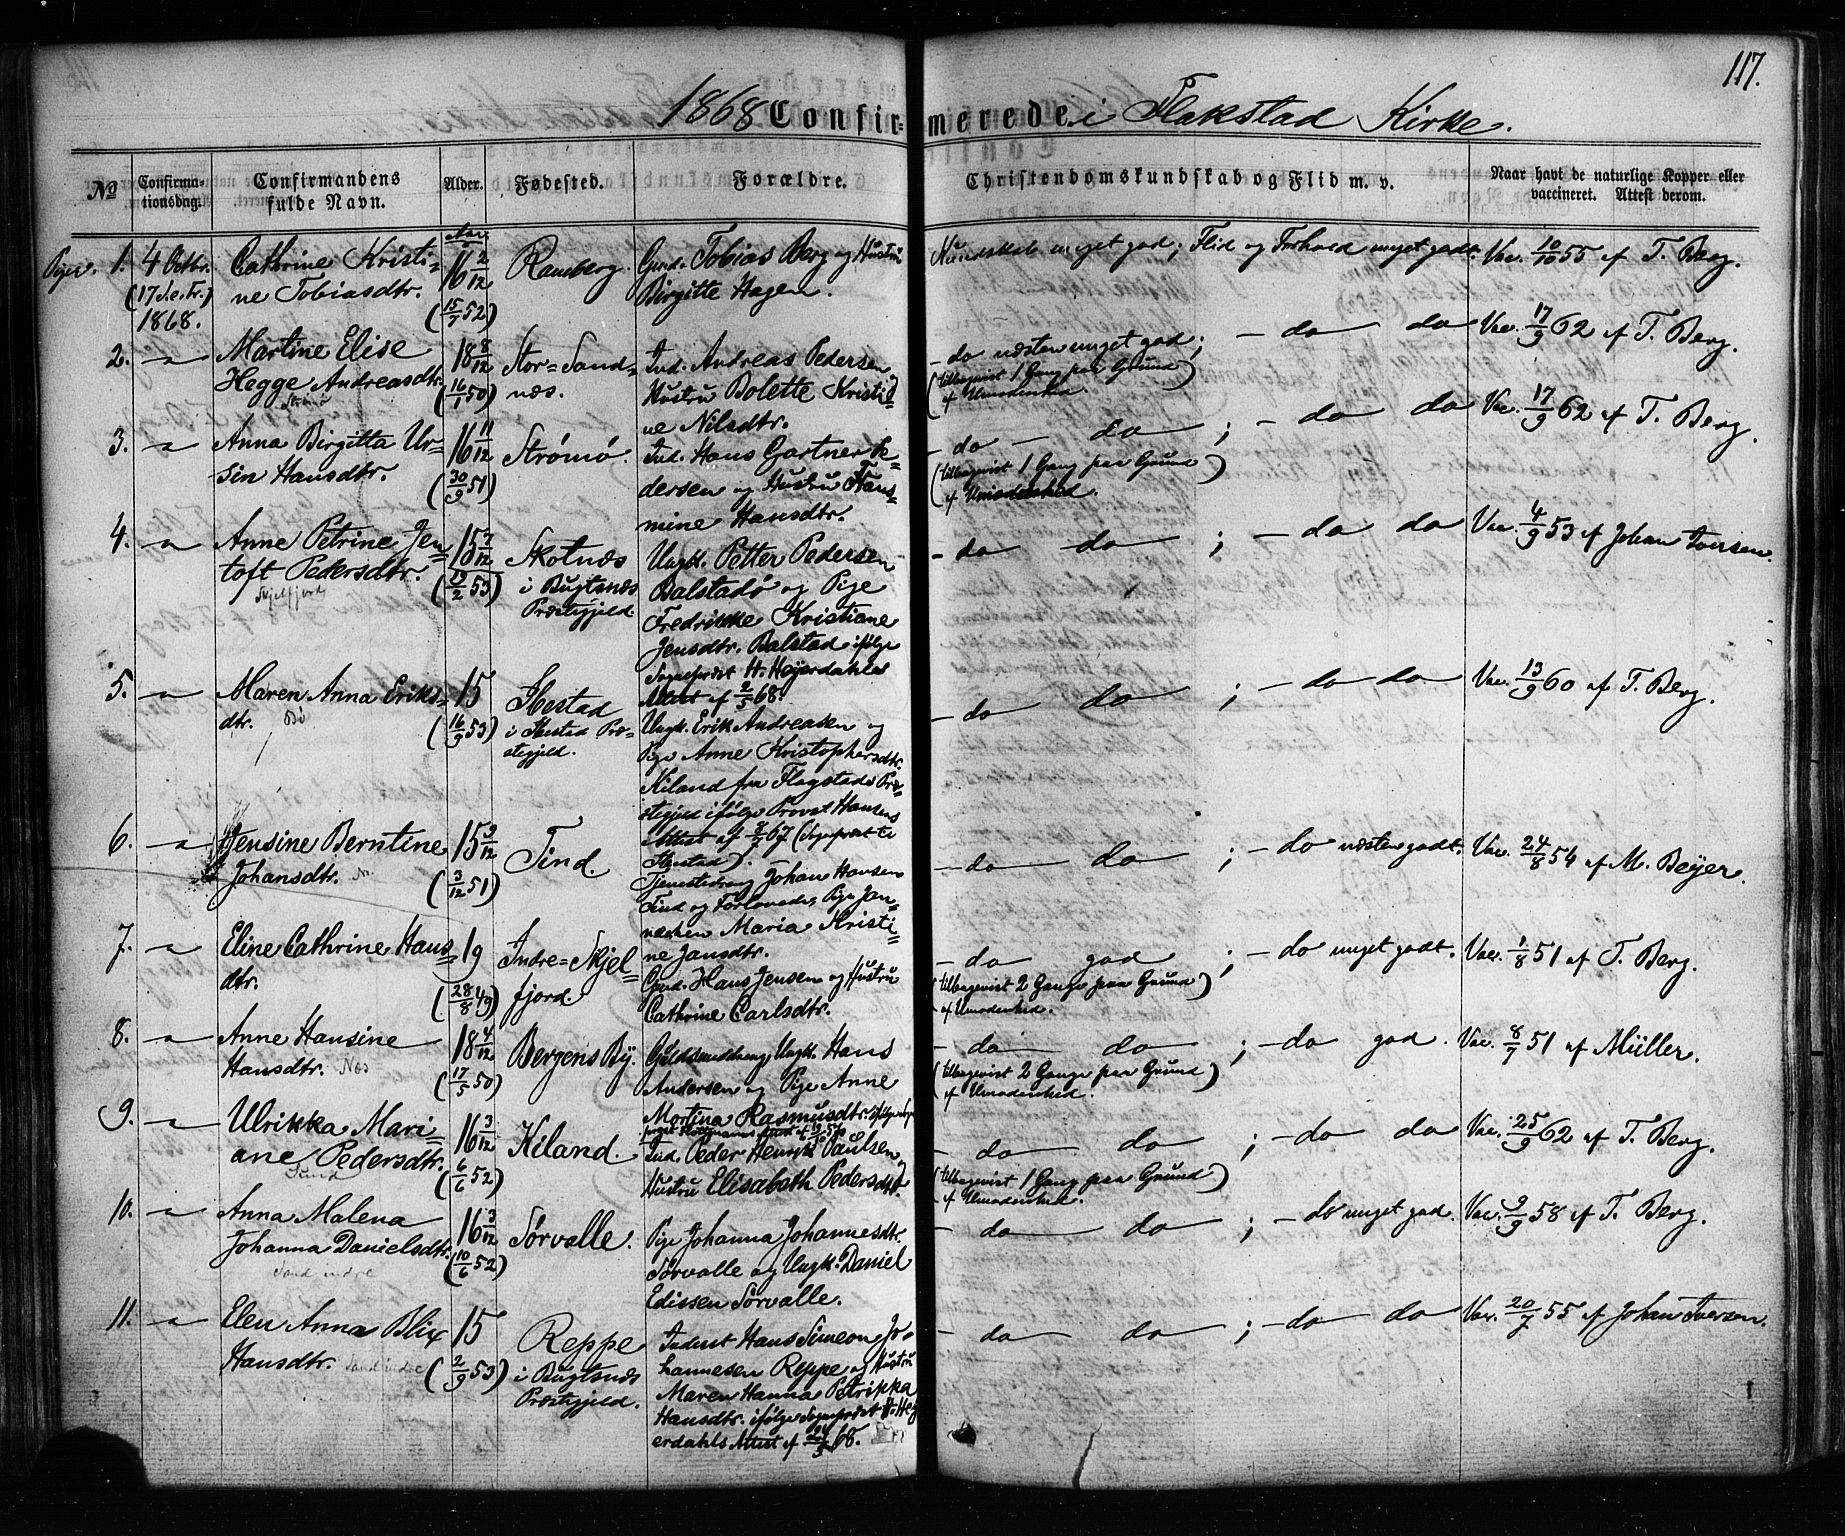 117.
1868 Confirmerede i Flakstad Kirke.
No
Confirmationsdag.
Confirmandens fulde Navn.
Alder.
Fødested.
Forældre.
Christendomskundskab og Flid m. v.
Naar havt de naturlige Kopper eller vaccineret. Attest derom.
Piger. 1. 4 Octbr. (17 S.e.Tr.) 1868.
Cathrine Kristine Tobiasdtr.
Aar 16 2/12 (15/7 52)
Ramberg.
Gmd. Tobias Berg og Hustru
Birgitte Hagen.
Kundskab meget god; Flid og Forhold meget godt.
Vac. 10/10 55 af T. Berg.
2. — " —
Martine Elise
Hegge Andreasdtr.
Strømø
18 8/12 (16/1 50)
Stor=Sandnæs.
Ind. Andreas Pedersen
Hustru Bolette Kristine Nilsdtr.
— do næsten meget god; — do do
(tilbagevist 1 Gang paa Grund
af Umodenhed.)
Vac. 17/9 62 af T. Berg.
3. — " —
Anna Birgitta Ursin Hansdtr.
16 11/12 (30/9 51)
Strømø.
Ind. Hans Gartner Pedersen og Hustru Hansmine Hansdtr.
— do — do ; — do do
(tilbagevist 1 Gang paa Grund
af Umodenhed.)
Vac. 17/9 62 af T. Berg.
4. — " —
Anne Petrine Jentoft Pedersdtr.
Skjelfjord
15 7/12 (19/2 53)
Skotnæs
i Bugtsnæs
Præstegjeld.
Ungk. Petter Pedersen
Balstadø og Pige
Fredrikke Kristiane
Jensdtr. Balstad ifølge
Sognepræst H. Heyerdahls
Attest af 2/5 68.
— do do ; — do do
Vac. 4/9 53 af Johan Iversen.
5. — " —
Maren Anna Eriksdtr.
Bø
15 (16/9 53)
Ibestad
i Ibestad Præstegjeld.
Ungk. Erik Andreasen og
Pige Anne Kristophersdtr.
Kiland fra Flagstads Præstegjeld ifølge Provst Hansens
Attest af 67 (Sognepræst til
Ibestad).
— do do ; — do do
Vac. 13/9 60 af T. Berg.
6. — " —
Jensine Berntine
Johansdtr.
15 9/12 (3/12 51)
Tind.
Tjenestedreng Johan Hansen
Tind og Forlovede, Pige Jannechen Maria Kristine Jansdtr.
— do do ; — do næsten godt.
Vac. 24/8 54 af M. Beyer.
7. — " —
Eline Cathrine Hansdtr.
19 (28/8 49)
Indre=Skjelfjord.
Gmd. Hans Jensen og Hustru
Cathrine Carlsdtr.
— do god ; — do meget godt.
(tilbagevist 2 Gange paa Grund
af Umodenhed.)
Vac. 1/8 51 af T. Berg.
8. — " —
Anne Hansine
Hansdtr. Næs
18 4/12 (17/5 50)
Bergens By.
Guldsmedsveng Ungk. Hans
Andersen og Pige Anne
Martina Rasmusdtr. ifølge
— do do ; — do god.
(tilbagevist 2 Gange paa Grund
af Umodenhed.)
Vac. 8/7 51 af Müller.
9. — " —
Ulrikka Mariane Pedersdtr.
Sund
16 3/12 (6/6 52)
Kiland.
Ind. Peder Henrik Paulsen,
Hustru Elisabeth Pedersdtr.
— do do ; — do do
(tilbagevist 1 Gang paa Grund
af Umodenhed.)
Vac. 25/9 62 af T. Berg.
10. — " —
Anna Malena
Johanna Danielsdtr.
Sand indre
16 3/12 (10/6 52)
Sørvalle.
Pige Johanna Johannesdtr.
Sørvalle og Ungk. Daniel
Edissen Sørvalle.
— do do ; — do meget god.
Vac. 9/9 58 af T. Berg.
11. — " —
Elen Anna Blix
Hansdtr. Sand indre
15 (2/9 53)
Reppe
i Bugtsnæs
Præstegjeld.
Inderst Hans Simeon Johannesen Reppe og Hustru
Maren Hanna Petrikka
Hansdtr. ifølge Sognepræst H. Heyerdahls Attest af 68.
— do do ; — do — do
Vac. 20/7 55 af Johan Iversen.